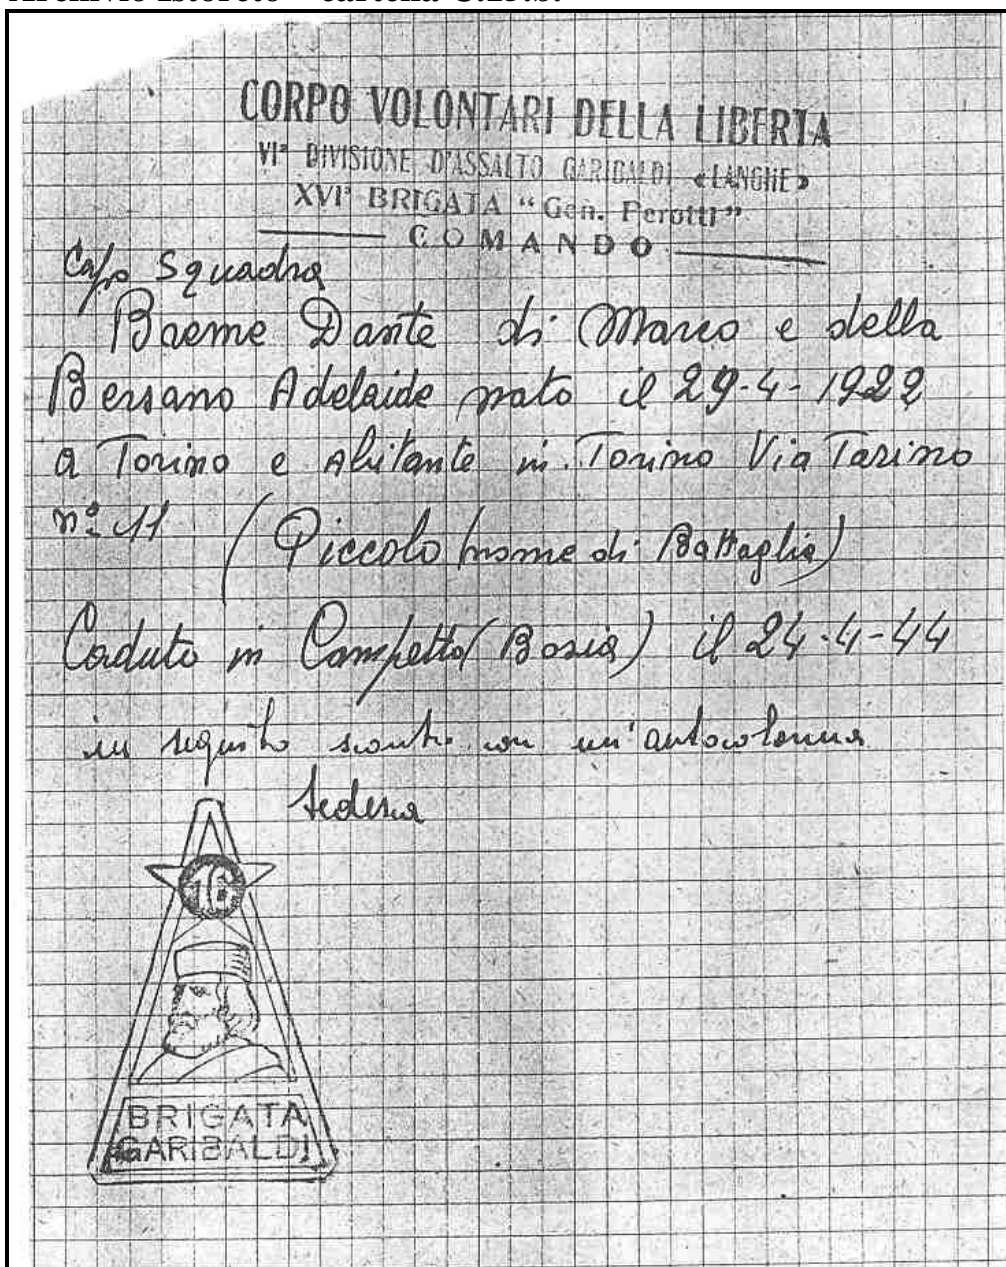 CORPO VOLONTARI DELLA LIBERTA
VIª DIVISIONE D'ASSALTO GARIBALDI «LANGHE»
XVIª BRIGATA "Gen. Perotti"
COMANDO
Capo Squadra
Baeme Dante di Marco e della
Bersano Adelaide nato il 29-4-1922
a Torino e abitante in Torino Via Tarino
nº 11 (Piccolo nome di Battaglia)
Caduto in Campetto (Bosia) il 24-4-44
in seguito scontro con un'autocolonna
tedesca
16
BRIGATA
GARIBALDI